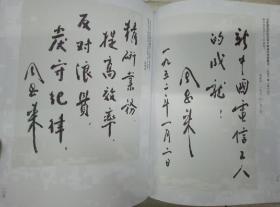 新中國電信工人
的成就！
周恩来
一九五二年一月二日
精研業务，
提高效率，
反对浪費，
严守纪律。
周恩来